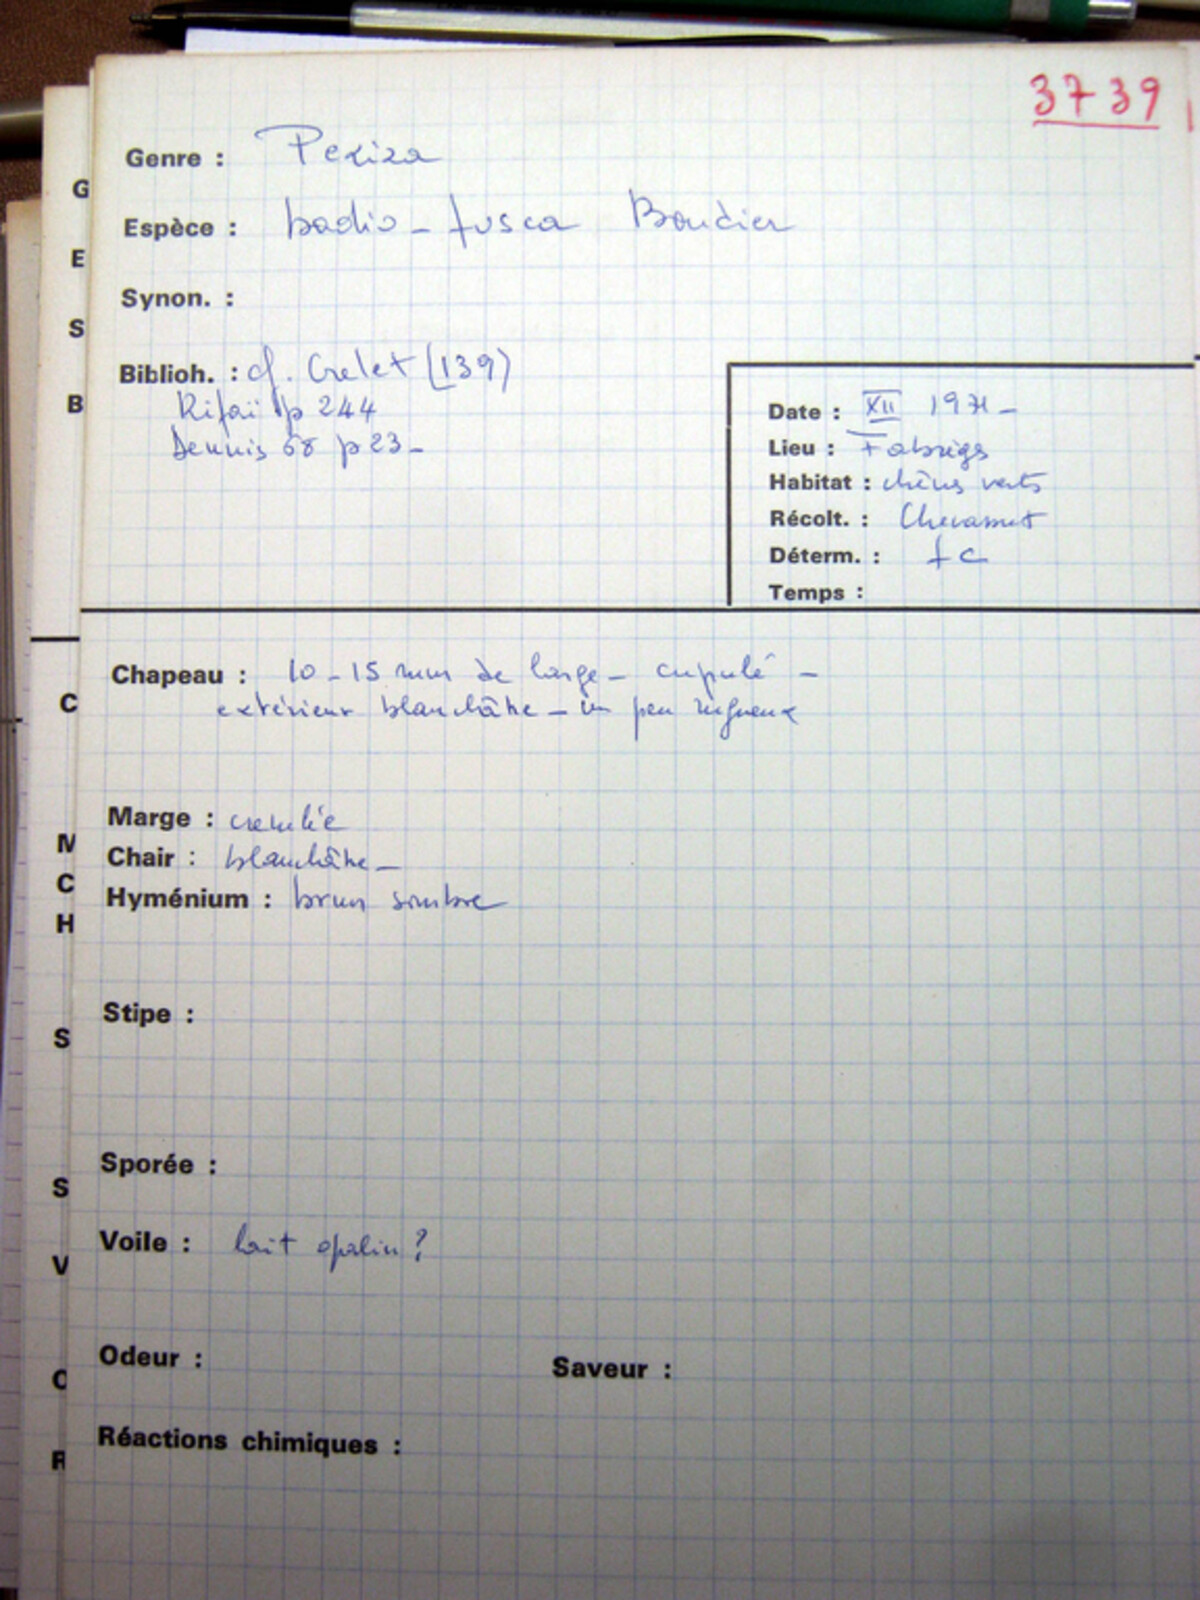 3739
Genre : Peziza
Espèce : badio-fusca Boudier
Synon. :
Biblioh. : cf. Grelet (139)
Rifaï p 244
Dennis 68 p 23 -
Date : XII 1971 -
Lieu : Fabrègs
Habitat : chênes verts
Récolt. : Chevassut
Déterm. : fc
Temps :
Chapeau : 10-15 mm de large - cupulé -
extérieur blanchâtre - un peu rugueux
Marge : crénelée
Chair : blanchâtre -
Hyménium : brun sombre
Stipe :
Sporée :
Voile : lait opalin ?
Odeur : Saveur :
Réactions chimiques :
G
E
S
B
C
M
C
H
S
S
V
O
R